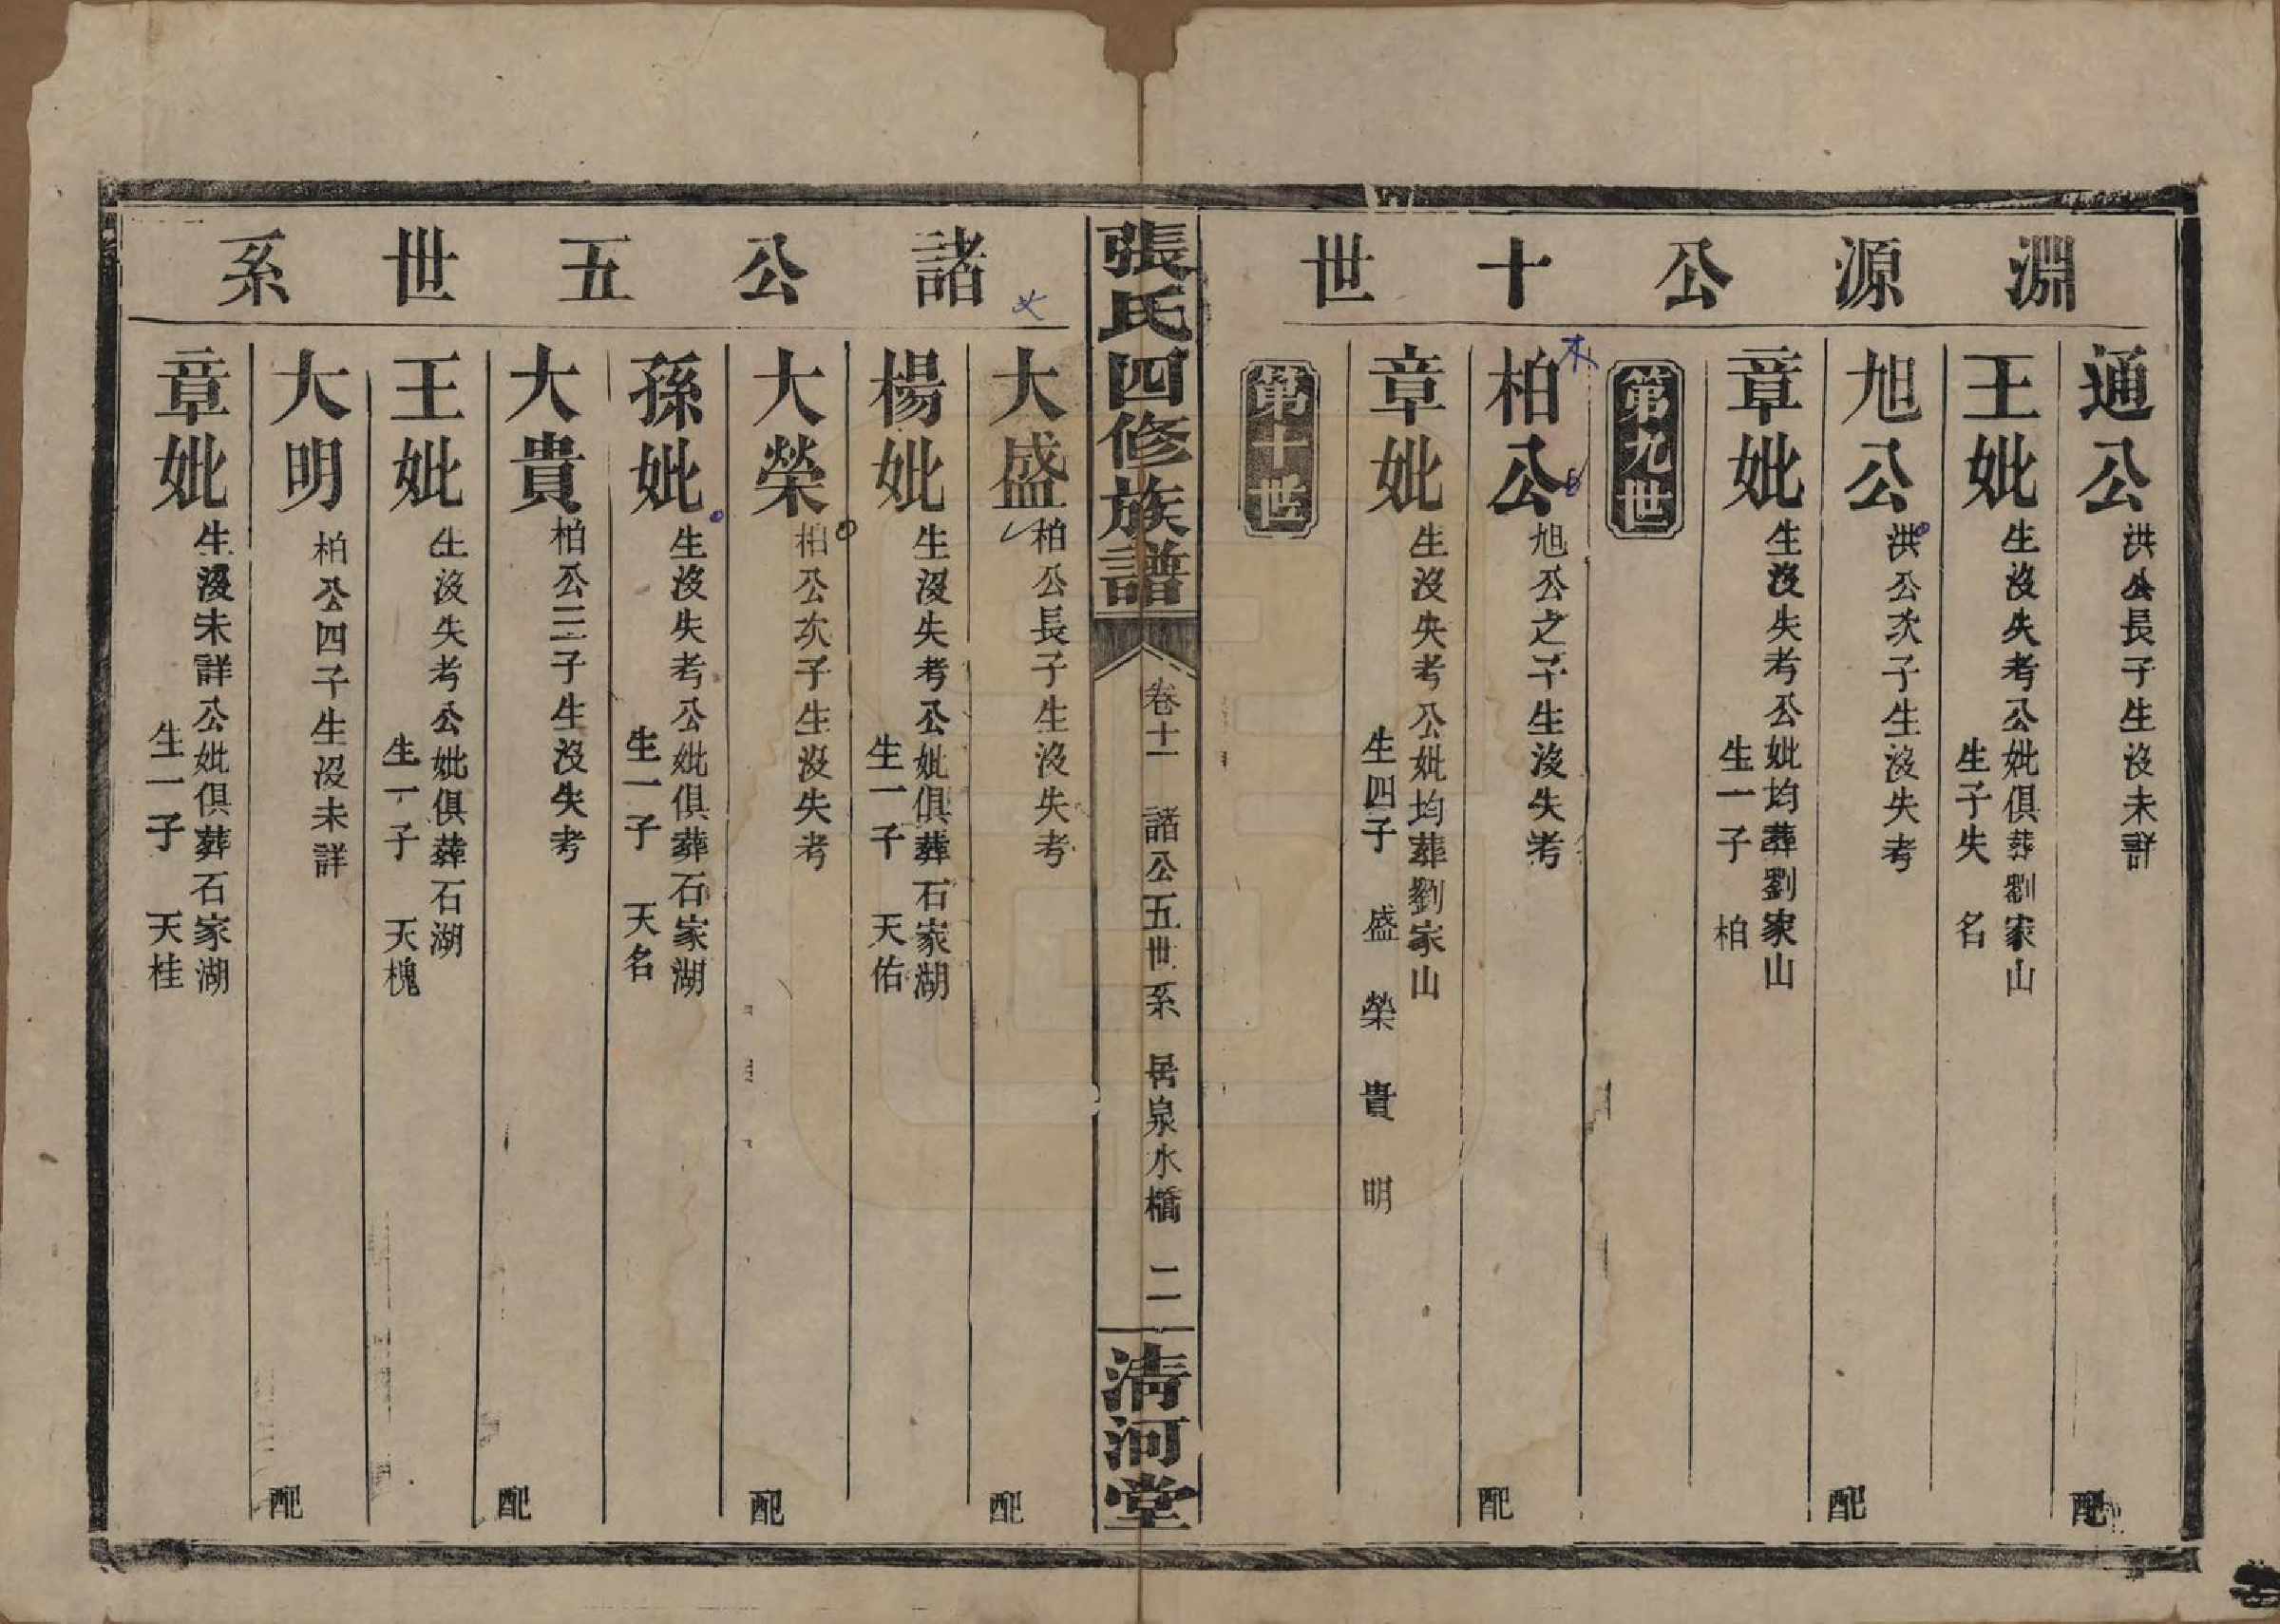 淵源公十世
通公 洪公長子生沒未詳 配
王妣 生沒失考公妣俱葬劉家山
生子失 名
旭公 洪公次子生沒失考 配
章妣 生沒失考公妣均葬劉家山
生一子 柏
第九世
柏公 旭公之子生沒失考 配
章妣 生沒失考公妣均葬劉家山
生四子 盛 榮 貴 明
第十世
張氏四修族譜
卷十一 諸公五世系 居泉水橋 二
清河堂
諸公五世系
大盛 柏公長子生沒失考 配
楊妣 生沒失考公妣俱葬石家湖
生一子 天佑
大榮 柏公次子生沒失考 配
孫妣 生沒失考公妣俱葬石家湖
生一子 天名
大貴 柏公三子生沒失考 配
王妣 生沒失考公妣俱葬石湖
生一子 天槐
大明 柏公四子生沒未詳 配
章妣 生沒未詳公妣俱葬石家湖
生一子 天桂